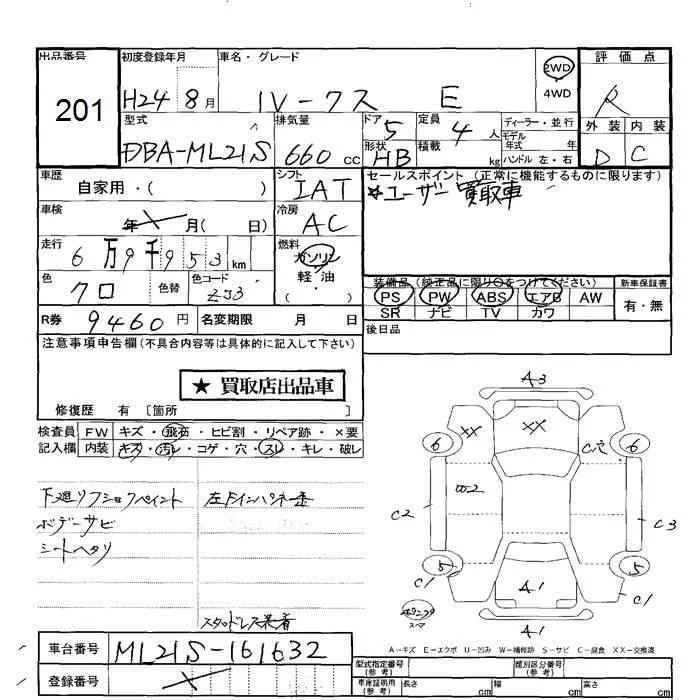 出品番号
201
初度登録年月
H24 8月
車名・グレード
ルークス E
2WD
4WD
評価点
R
外装 内装
D C
型式
DBA-ML21S
排気量
660cc
ドア
5
形状
HB
定員
4人
積載
kg
ディーラー・並行
モデル
年式 年
ハンドル 左・右
車歴
自家用・( )
シフト
IAT
セールスポイント (正常に機能するものに限ります)
*ユーザー買取車
車検
年 月( 日)
冷房
AC
走行
6万9千953km
燃料
ガソリン
軽・油
( )
色
クロ
色替
色コード
ZJ3
装備品 (純正品に限り○をつけてください)
PS PW ABS エアB AW
SR ナビ TV カワ
新車保証書
有・無
R券 9460円
名変期限 月 日
後日品
注意事項申告欄(不具合内容等は具体的に記入して下さい)
★ 買取店出品車
修復歴 有 〔箇所 〕
検査員 FW キズ・飛石・ヒビ割・リペア跡・×要
記入欄 内装 キズ・汚レ・コゲ・穴・スレ・キレ・破レ
下廻リフショックペイント
ボデーサビ
シートヘタリ
スタッドレス装着
A3
XX
XX
6
6
C穴
C2
C3
5
5
C1
C1
A1
A1
スペア
A=キズ E=エクボ U=凹み W=補修跡 S=サビ C=腐食 XX=交換済
車台番号 ML21S-161632
登録番号
型式指定番号
(参考)
類別区分番号
(参考)
車庫証明用
(参考)
長さ cm
幅 cm
高さ cm